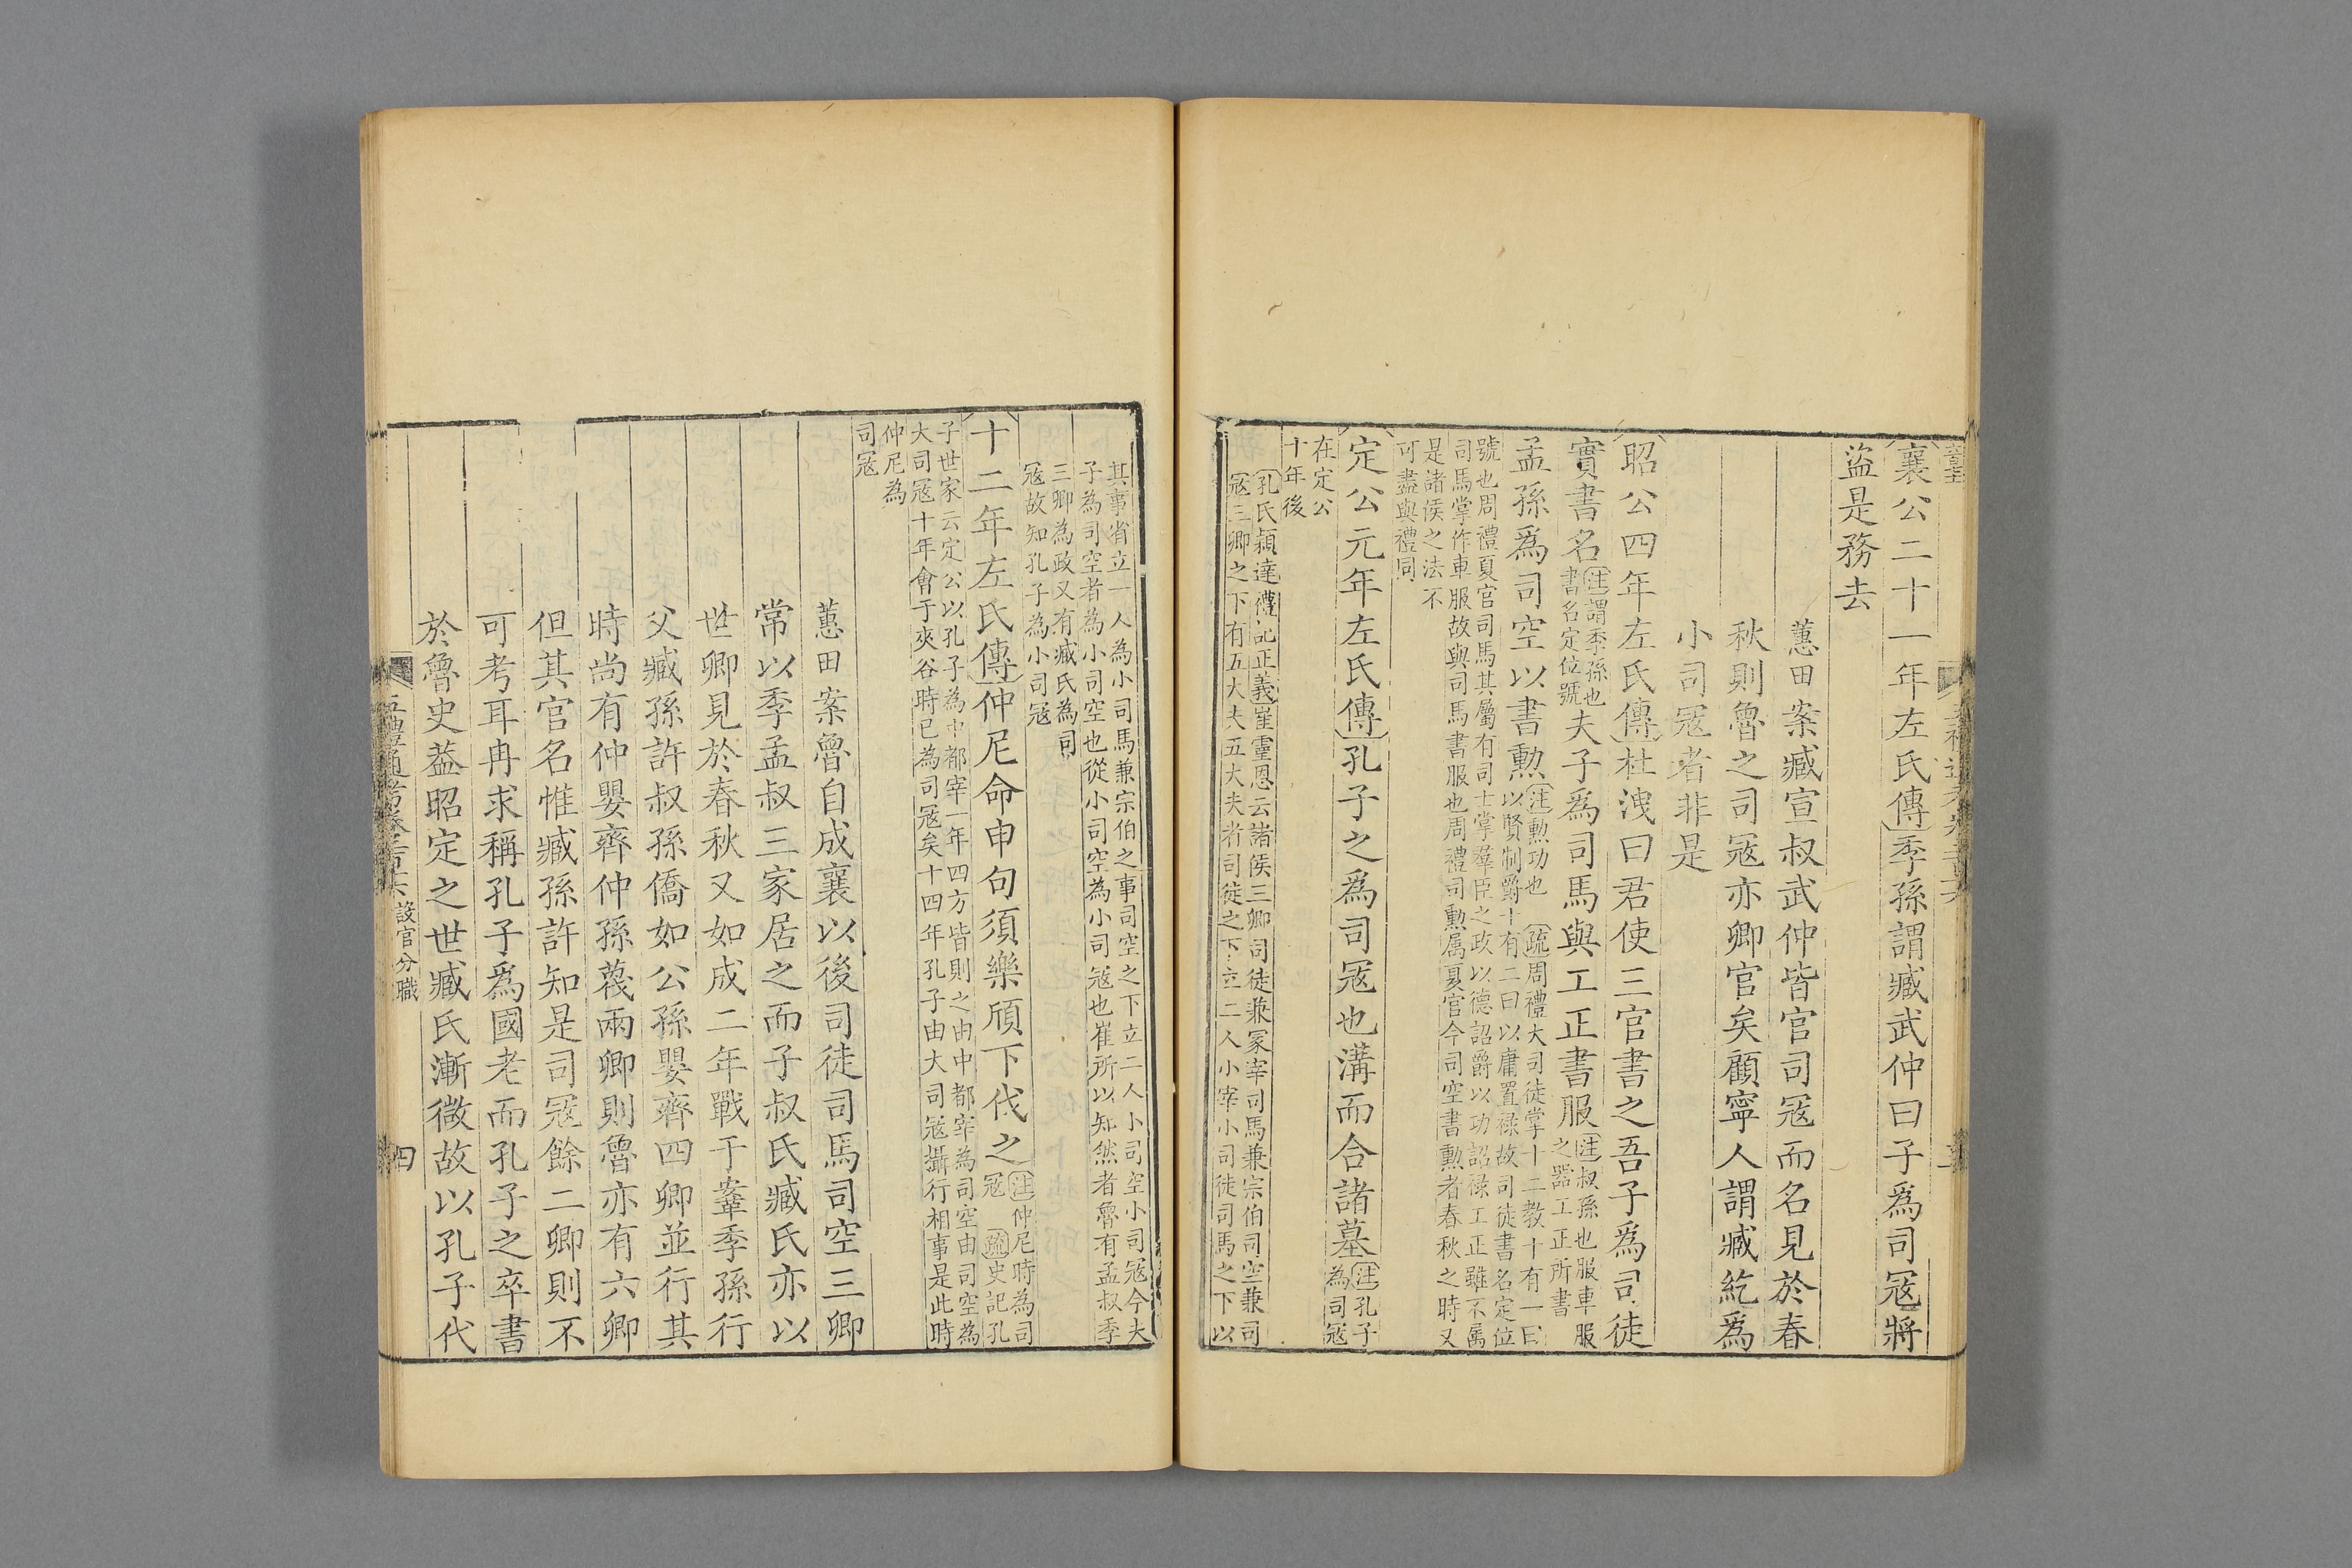 襄公二十一年左氏傳季孫謂臧武仲曰子爲司宼將
盜是務去
蕙田案臧宣叔武仲皆官司宼而名見於春
秋則魯之司宼亦卿官矣顧寧人謂臧紇爲
小司宼者非是
昭公四年左氏傳杜洩曰君使三官書之吾子爲司徒
實書名注謂季孫也書名定位號夫子爲司馬與工正書服注叔孫也服車服之器工正所書
孟孫爲司空以書勲注勲功也 疏周禮大司徒掌十二教十有一曰以賢制爵十有二曰以庸置禄故司徒書名定位
號也周禮夏官司馬其屬有司士掌羣臣之政以德詔爵以功詔禄工正雖不属
司馬掌作車服故與司馬書服也周禮司勲属夏官今司空書勲者春秋之時又
是諸侯之法不
可盡與禮同
定公元年左氏傳孔子之爲司宼也溝而合諸墓注孔子為司宼
在定公
十年後
孔氏穎達禮記正義崔靈恩云諸侯三卿司徒兼冢宰司馬兼宗伯司空兼司
宼三卿之下有五大夫五大夫者司徒之下立二人小宰小司徒司馬之下以
其事省立一人為小司馬兼宗伯之事司空之下立二人小司空小司宼今夫
子為司空者為小司空也從小司空為小司宼也崔所以知然者魯有孟叔季
三卿為政又有臧氏為司
宼故知孔子為小司宼
十二年左氏傳仲尼命申句須樂頎下伐之注仲尼時為司宼 疏史記孔
子世家云定公以孔子為中都宰一年四方皆則之由中都宰為司空由司空為
大司宼十年會于夾谷時已為司宼矣十四年孔子由大司宼攝行相事是此時
仲尼為
司宼
蕙田案魯自成襄以後司徒司馬司空三卿
常以季孟叔三家居之而子叔氏臧氏亦以
世卿見於春秋又如成二年戰于鞌季孫行
父臧孫許叔孫僑如公孫嬰齊四卿並行其
時尚有仲嬰齊仲孫蔑兩卿則魯亦有六卿
但其官名惟臧孫許知是司宼餘二卿則不
可考耳冉求稱孔子爲國老而孔子之卒書
於魯史葢昭定之世臧氏漸微故以孔子代
五禮通考卷二百十六 設官分職
四